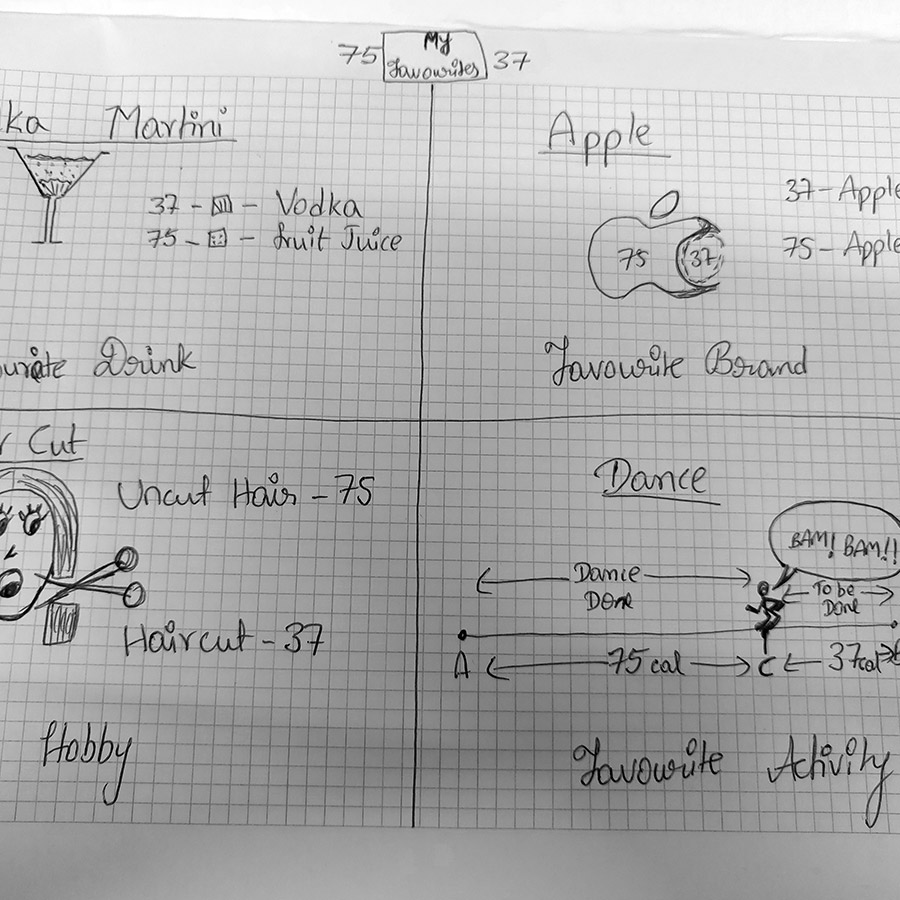 75 My 37
Favourites
ka Martini
37 - - Vodka
75 - - fruit Juice
Drink
Apple
37 - Apple
75 - Apple
75 37
Favourite Brand
Cut
Uncut Hair - 75
Haircut - 37
Hobby
Dance
BAM! BAM!!
Dance
Done
To be
Done
A 75 cal C 37cal
Favourite Activity